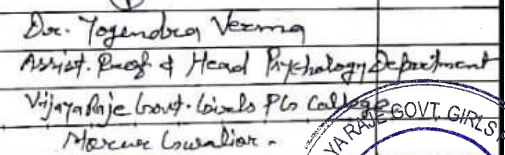 Dr. Yogendra Verma
Assist. Prof & Head Psychology Department
Vijaya Raje Govt. Girls PG College
Morar Gwalior.
YA RAJE GOVT. GIRLS